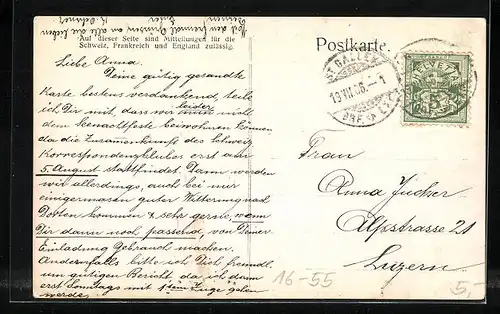 Auf dieser Seite sind Mitteilungen für die
Schweiz, Frankreich und England zulässig.
Postkarte.
Liebe Anna.
Deine gütig gesandte
Karte bestens verdankend, teile
ich Dir mit, dass wir leider nicht
dem Seenachtfeste beiwohnen können
da die Zusammenkunft des Schweiz.
Korrespondenzklubes erst am
5. August stattfindet. Dann werden
wir allerdings, auch bei nur
einigermassen guter Witterung nach
Dorten kommen & sehr gerne, wenn
Dir dann noch passend, von Deiner
Einladung Gebrauch machen.
Andernfalls bitte ich Dich freundl.
um gütigen Bericht da ich dann
erst Sonntags mit 1stem Zuge gehen
werde.
Mit den freundl. Grüssen an alle die lieben
Deinen
ST. GALLEN
19.VII.06.-1
BRF. EXP.
Frau
Anna
Alpstrasse 21
Luzern.
16-55
5,-